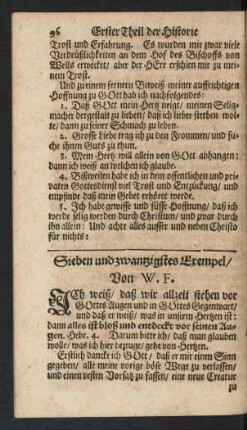 96 Erster Theil der Historie
Trost und Erfahrung. Es wurden mir zwar viele
Verdrüßlichkeiten an dem Hof des Bischoffs von
Wells erwecket/ aber der HErr erschien mir zu mei-
nem Trost.
Und zu einem fernern Beweiß meiner auffrichtigen
Hoffnung zu GOtt hab ich nachfolgendes:
1. Daß GOtt mein Hertz neigt/ meinen Selig-
macher dergestalt zu lieben/ daß ich lieber sterben wol-
te/ dann zu seiner Schmach zu leben.
2. Grosse Liebe trag ich zu den Frommen/ und su-
che ihnen Guts zu thun.
3. Mein Hertz will allein von GOtt abhangen:
dann ich weiß an welchen ich glaube.
4. Bißweilen habe ich in dem offentlichen und pri-
vaten Gottesdienst viel Trost und Entzückung/ und
empfinde daß mein Gebet erhöret werde.
5. Ich habe gewisse und feste Hoffnung/ daß ich
werde selig werden durch Christum/ und zwar durch
ihn allein: Und achte alles ausser und neben Christo
für nichts:
Sieben und zwantzigstes Exempel/
Von W. F.
ICh weiß/ daß wir allzeit stehen vor
GOttes Augen und in GOttes Gegenwart/
und daß er weiß/ was in unserm Hertzen ist:
dann alles ist bloß und entdeckt vor seinen Au-
gen. Hebr. 4. Darum bitte ich/ daß man glauben
wolle/ was ich hier bezeuge/ gehe von Hertzen.
Erstlich dancke ich GOtt/ daß er mir einen Sinn
gegeben/ alle meine vorige böse Wege zu verlassen/
und einen vesten Vorsatz zu fassen/ eine neue Creatur
zu